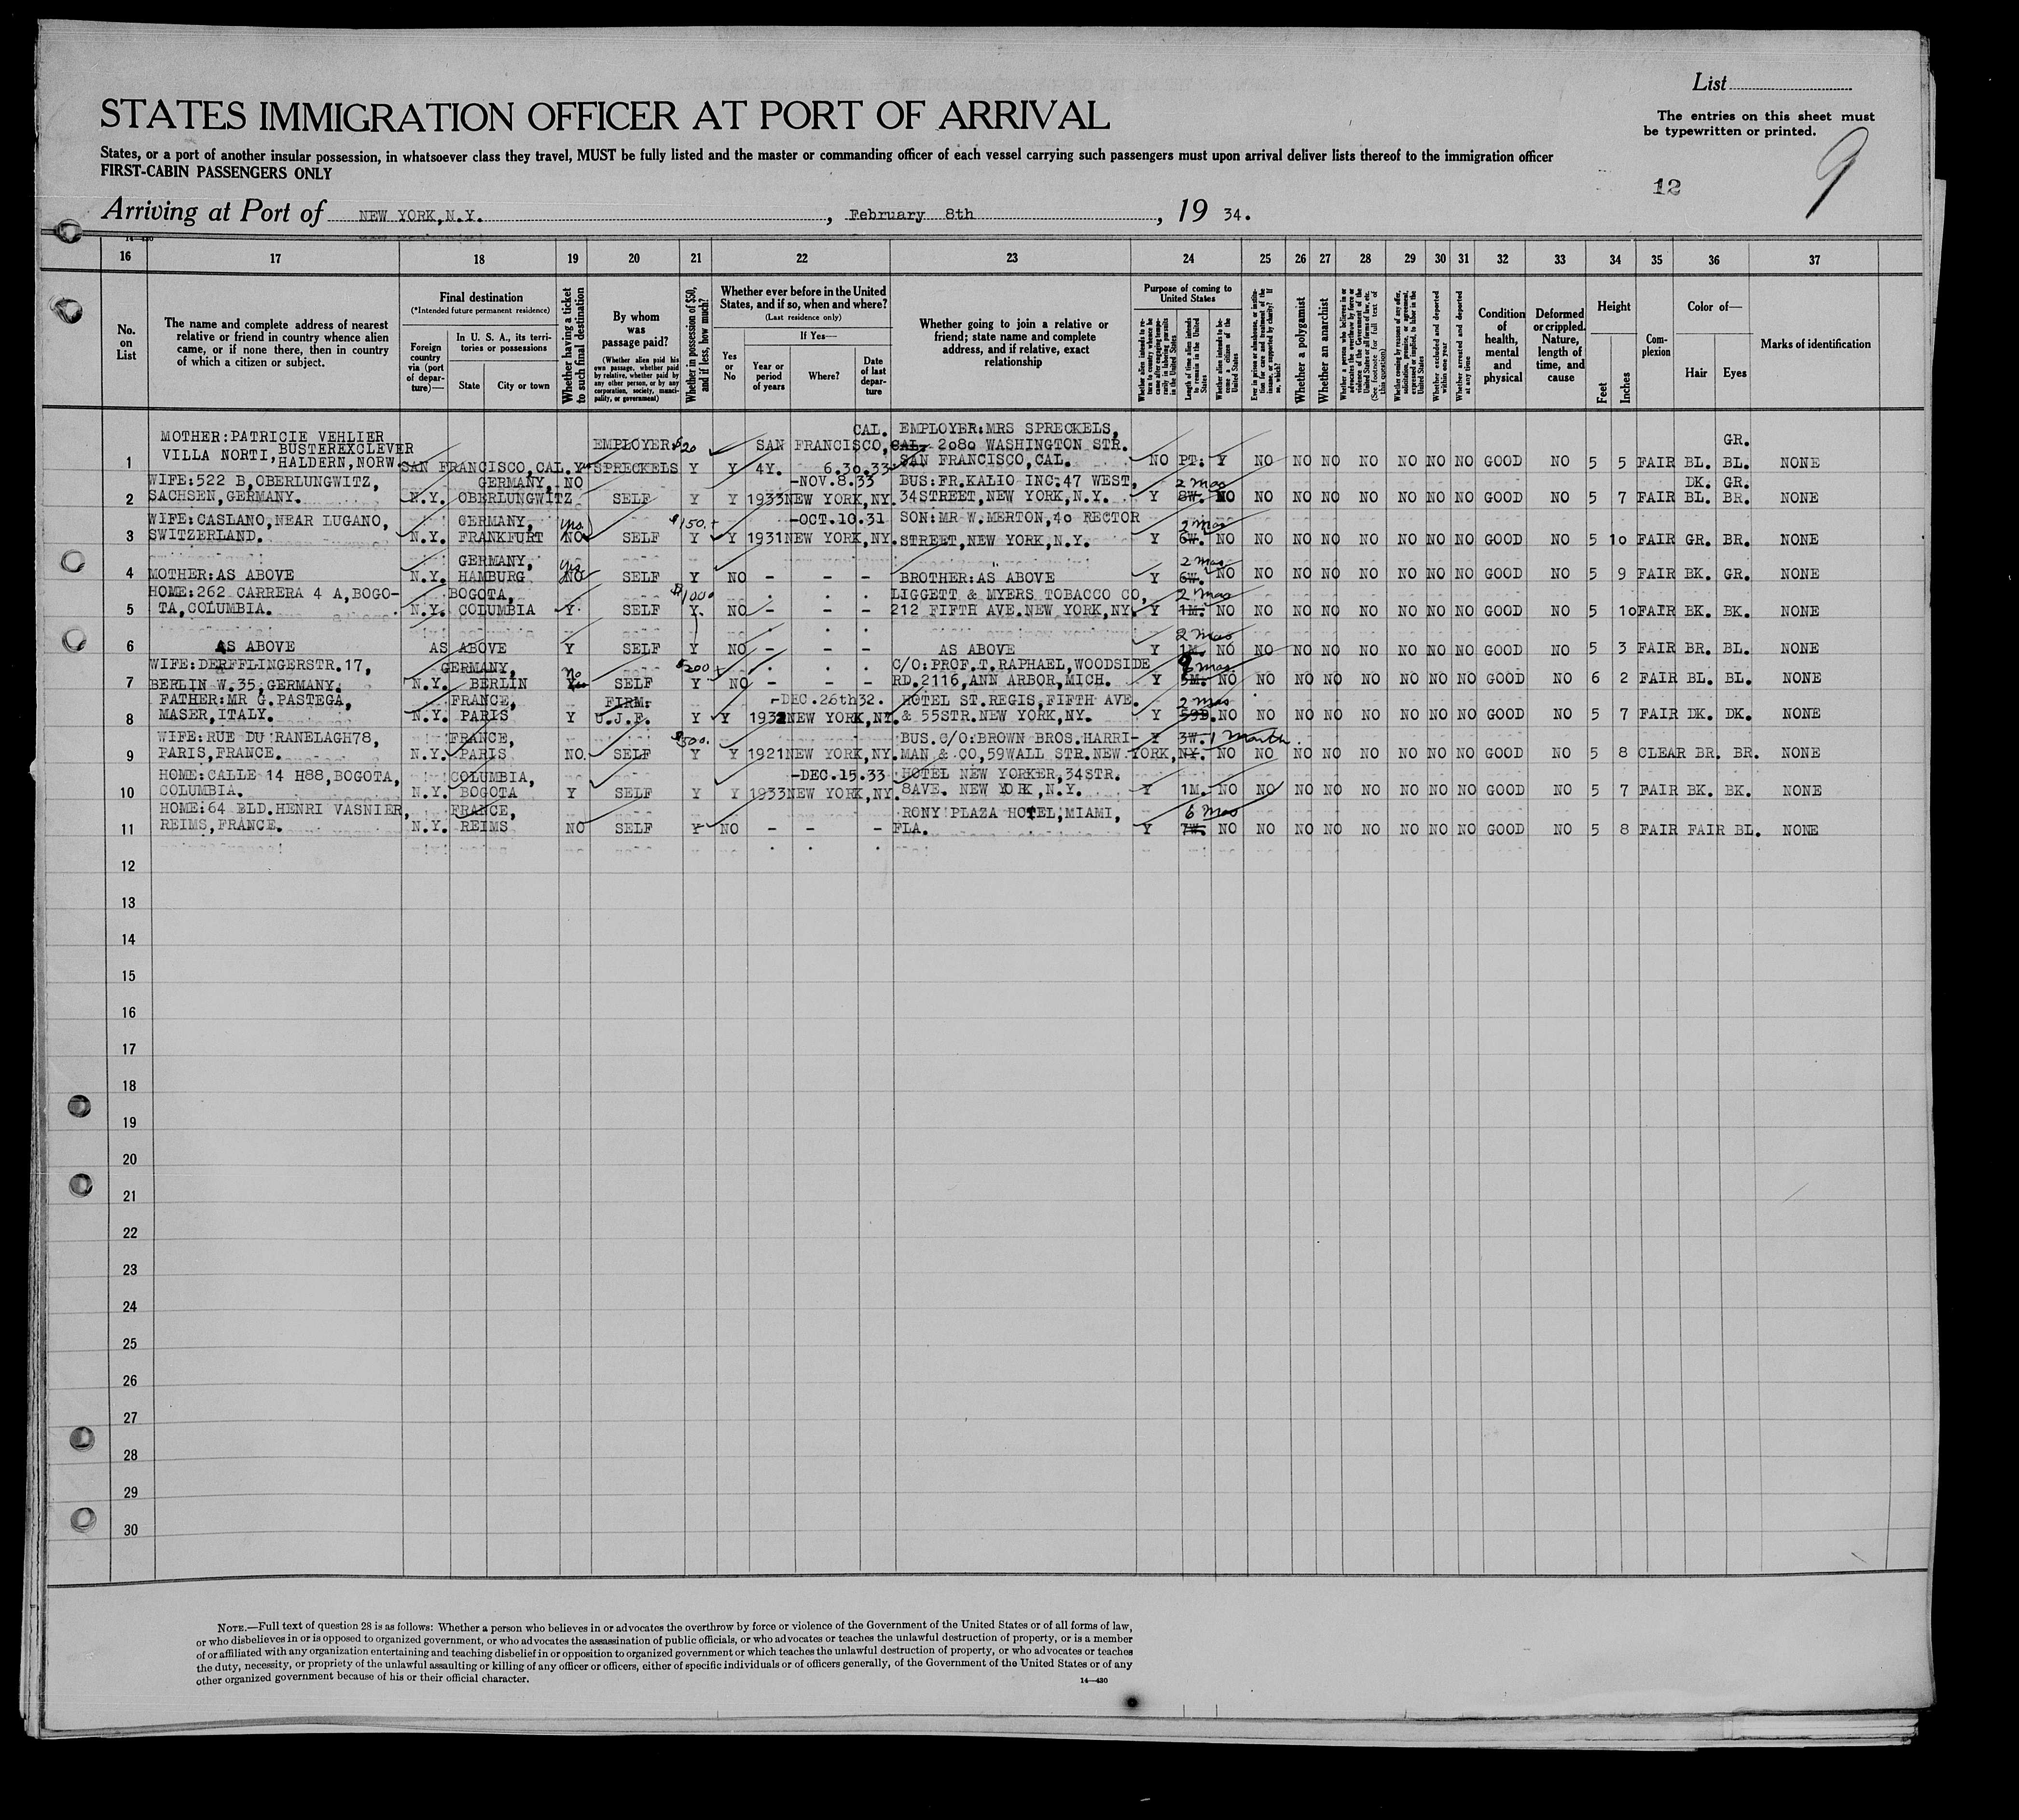 List
The entries on this sheet must
be typewritten or printed.
STATES IMMIGRATION OFFICER AT PORT OF ARRIVAL
States, or a port of another insular possession, in whatsoever class they travel, MUST be fully listed and the master or commanding officer of each vessel carrying such passengers must upon arrival deliver lists thereof to the immigration officer
FIRST-CABIN PASSENGERS ONLY
12
9
Arriving at Port of NEW YORK,N.Y. , February 8th , 19 34.
16 17 18 19 20 21 22 23 24 25 26 27 28 29 30 31 32 33 34 35 36 37
No. on List
The name and complete address of nearest
relative or friend in country whence alien
came, or if none there, then in country
of which a citizen or subject.
Final destination
(*Intended future permanent residence)
Foreign country via (port of departure)—
In U. S. A., its territories or possessions
State
City or town
Whether having a ticket to such final destination
By whom was passage paid?
(Whether alien paid his own passage, whether paid by relative, whether paid by any other person, or by any corporation, society, municipality, or government)
Whether in possession of $50, and if less, how much?
Whether ever before in the United
States, and if so, when and where?
(Last residence only)
Yes or No
If Yes—
Year or period of years
Where?
Date of last departure
Whether going to join a relative or
friend; state name and complete
address, and if relative, exact
relationship
Purpose of coming to United States
Length of time alien intends to remain in the United States
Whether alien intends to become a citizen of the United States
Whether a polygamist
Whether an anarchist
Whether excluded and deported within one year
Whether arrested and deported at any time
Condition of health, mental and physical
Deformed or crippled. Nature, length of time, and cause
Height
Feet
Inches
Complexion
Color of—
Hair
Eyes
Marks of identification
1 MOTHER:PATRICIE VEHLIER
BUSTEREXCLEVER
VILLA NORTI, HALDERN,NORW. SAN FRANCISCO,CAL. Y EMPLOYER: SPRECKELS $20 Y Y 4Y. SAN FRANCISCO, CAL. 6.30.33 EMPLOYER:MRS SPRECKELS,
2080 WASHINGTON STR.
SAN FRANCISCO,CAL. NO PT. Y NO NO NO NO NO NO NO GOOD NO 5 5 FAIR BL. GR. BL. NONE
2 WIFE:522 B,OBERLUNGWITZ,
SACHSEN,GERMANY. N.Y. GERMANY, OBERLUNGWITZ NO SELF Y Y 1933 NEW YORK,NY. -NOV.8.33 BUS:FR.KALIO INC.47 WEST,
34STREET,NEW YORK,N.Y. Y 8W. 2 mos NO NO NO NO NO NO NO NO GOOD NO 5 7 FAIR DK. BL. GR. BR. NONE
3 WIFE:CASLANO,NEAR LUGANO,
SWITZERLAND. N.Y. GERMANY, FRANKFURT NO yes SELF $150.+ Y Y 1931 NEW YORK,NY. -OCT.10.31 SON:MR W.MERTON,40 RECTOR
STREET,NEW YORK,N.Y. Y 6W. 2 mos NO NO NO NO NO NO NO NO GOOD NO 5 10 FAIR GR. BR. NONE
4 MOTHER:AS ABOVE N.Y. GERMANY, HAMBURG NO yes SELF Y NO - - - BROTHER:AS ABOVE Y 6W. 2 mos NO NO NO NO NO NO NO NO GOOD NO 5 9 FAIR BK. GR. NONE
5 HOME:262 CARRERA 4 A,BOGO-
TA,COLUMBIA. N.Y. BOGOTA, COLUMBIA Y SELF $1000 Y. NO - - - LIGGETT & MYERS TOBACCO CO,
212 FIFTH AVE.NEW YORK,NY. Y 1M. 2 mos NO NO NO NO NO NO NO NO GOOD NO 5 10 FAIR BK. BK. NONE
6 AS ABOVE AS ABOVE Y SELF Y NO - - - AS ABOVE Y 1M. 2 mos NO NO NO NO NO NO NO NO GOOD NO 5 3 FAIR BR. BL. NONE
7 WIFE:DERFFLINGERSTR.17,
BERLIN W.35,GERMANY. N.Y. GERMANY, BERLIN no SELF $200+ Y NO - - - C/O:PROF.T.RAPHAEL,WOODSIDE
RD.2116,ANN ARBOR,MICH. Y 3M. mos NO NO NO NO NO NO NO NO GOOD NO 6 2 FAIR BL. BL. NONE
8 FATHER:MR G.PASTEGA,
MASER,ITALY. N.Y. FRANCE, PARIS Y FIRM: U.J.F. Y Y 1932 NEW YORK,NY. -DEC.26th32. HOTEL ST.REGIS,FIFTH AVE.
& 55STR.NEW YORK,NY. Y 59D. 2 mos NO NO NO NO NO NO NO NO GOOD NO 5 7 FAIR DK. DK. NONE
9 WIFE:RUE DU RANELAGH78,
PARIS,FRANCE. N.Y. FRANCE, PARIS NO. SELF $500. Y Y 1921 NEW YORK,NY. BUS.C/O:BROWN BROS.HARRI-
MAN & CO,59WALL STR.NEW YORK,NY. Y 3W. 1 month NO NO NO NO NO NO NO NO GOOD NO 5 8 CLEAR BR. BR. NONE
10 HOME:CALLE 14 H88,BOGOTA,
COLUMBIA. N.Y. COLUMBIA, BOGOTA Y SELF Y Y 1933 NEW YORK,NY. -DEC.15.33 HOTEL NEW YORKER,34STR.
8AVE. NEW YORK,N.Y. Y 1M. NO NO NO NO NO NO NO NO GOOD NO 5 7 FAIR BK. BK. NONE
11 HOME:64 BLD.HENRI VASNIER,
REIMS,FRANCE. N.Y. FRANCE, REIMS NO SELF Y NO - - - RONY PLAZA HOTEL,MIAMI,
FLA. Y 7W. 6 mos NO NO NO NO NO NO NO NO GOOD NO 5 8 FAIR FAIR BL. NONE
12
13
14
15
16
17
18
19
20
21
22
23
24
25
26
27
28
29
30
NOTE.—Full text of question 28 is as follows: Whether a person who believes in or advocates the overthrow by force or violence of the Government of the United States or of all forms of law,
or who disbelieves in or is opposed to organized government, or who advocates the assassination of public officials, or who advocates or teaches the unlawful destruction of property, or is a member
of or affiliated with any organization entertaining and teaching disbelief in or opposition to organized government or which teaches the unlawful destruction of property, or who advocates or teaches
the duty, necessity, or propriety of the unlawful assaulting or killing of any officer or officers, either of specific individuals or of officers generally, of the Government of the United States or of any
other organized government because of his or their official character.
14—430